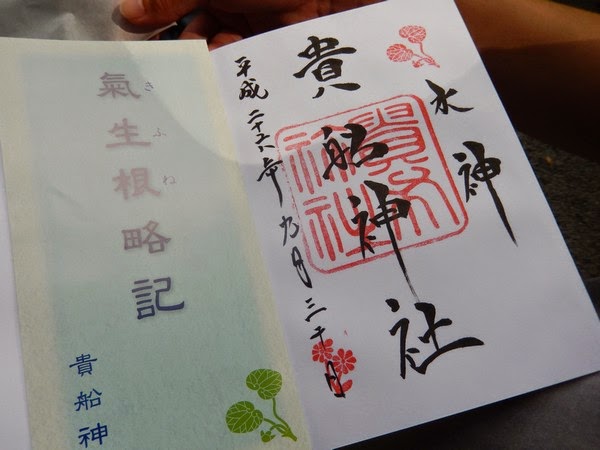 水神
貴船神社
平成二十六年九月三十日
貴船神社
氣生根略記
きふね
貴船神